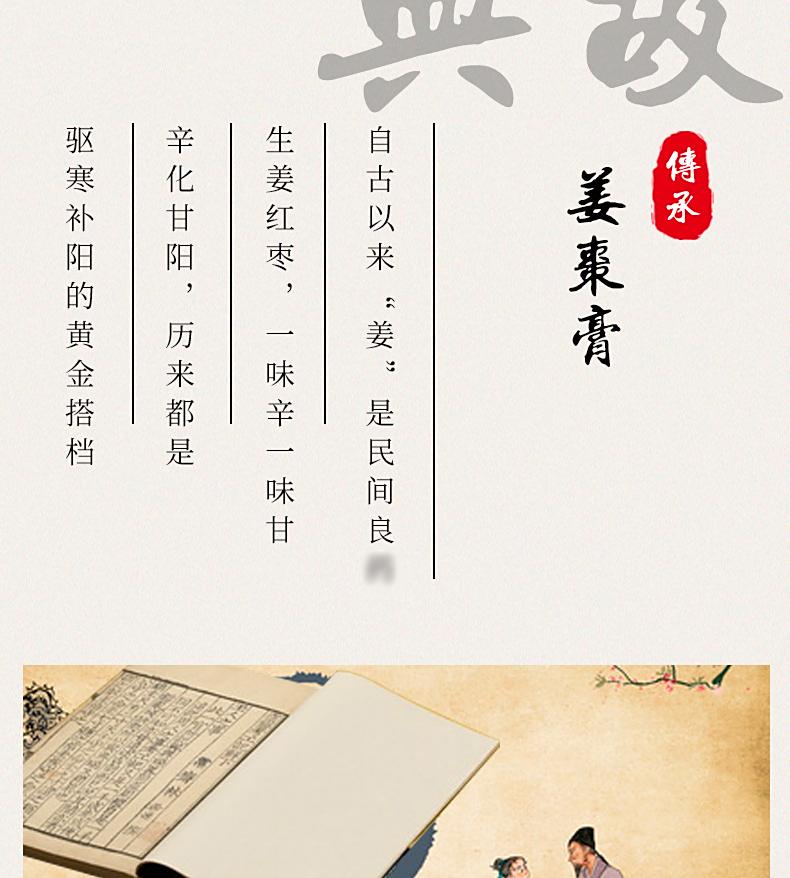 典故
傳承
姜棗膏
自古以来“姜”是民间良
生姜红枣，一味辛一味甘
辛化甘阳，历来都是
驱寒补阳的黄金搭档